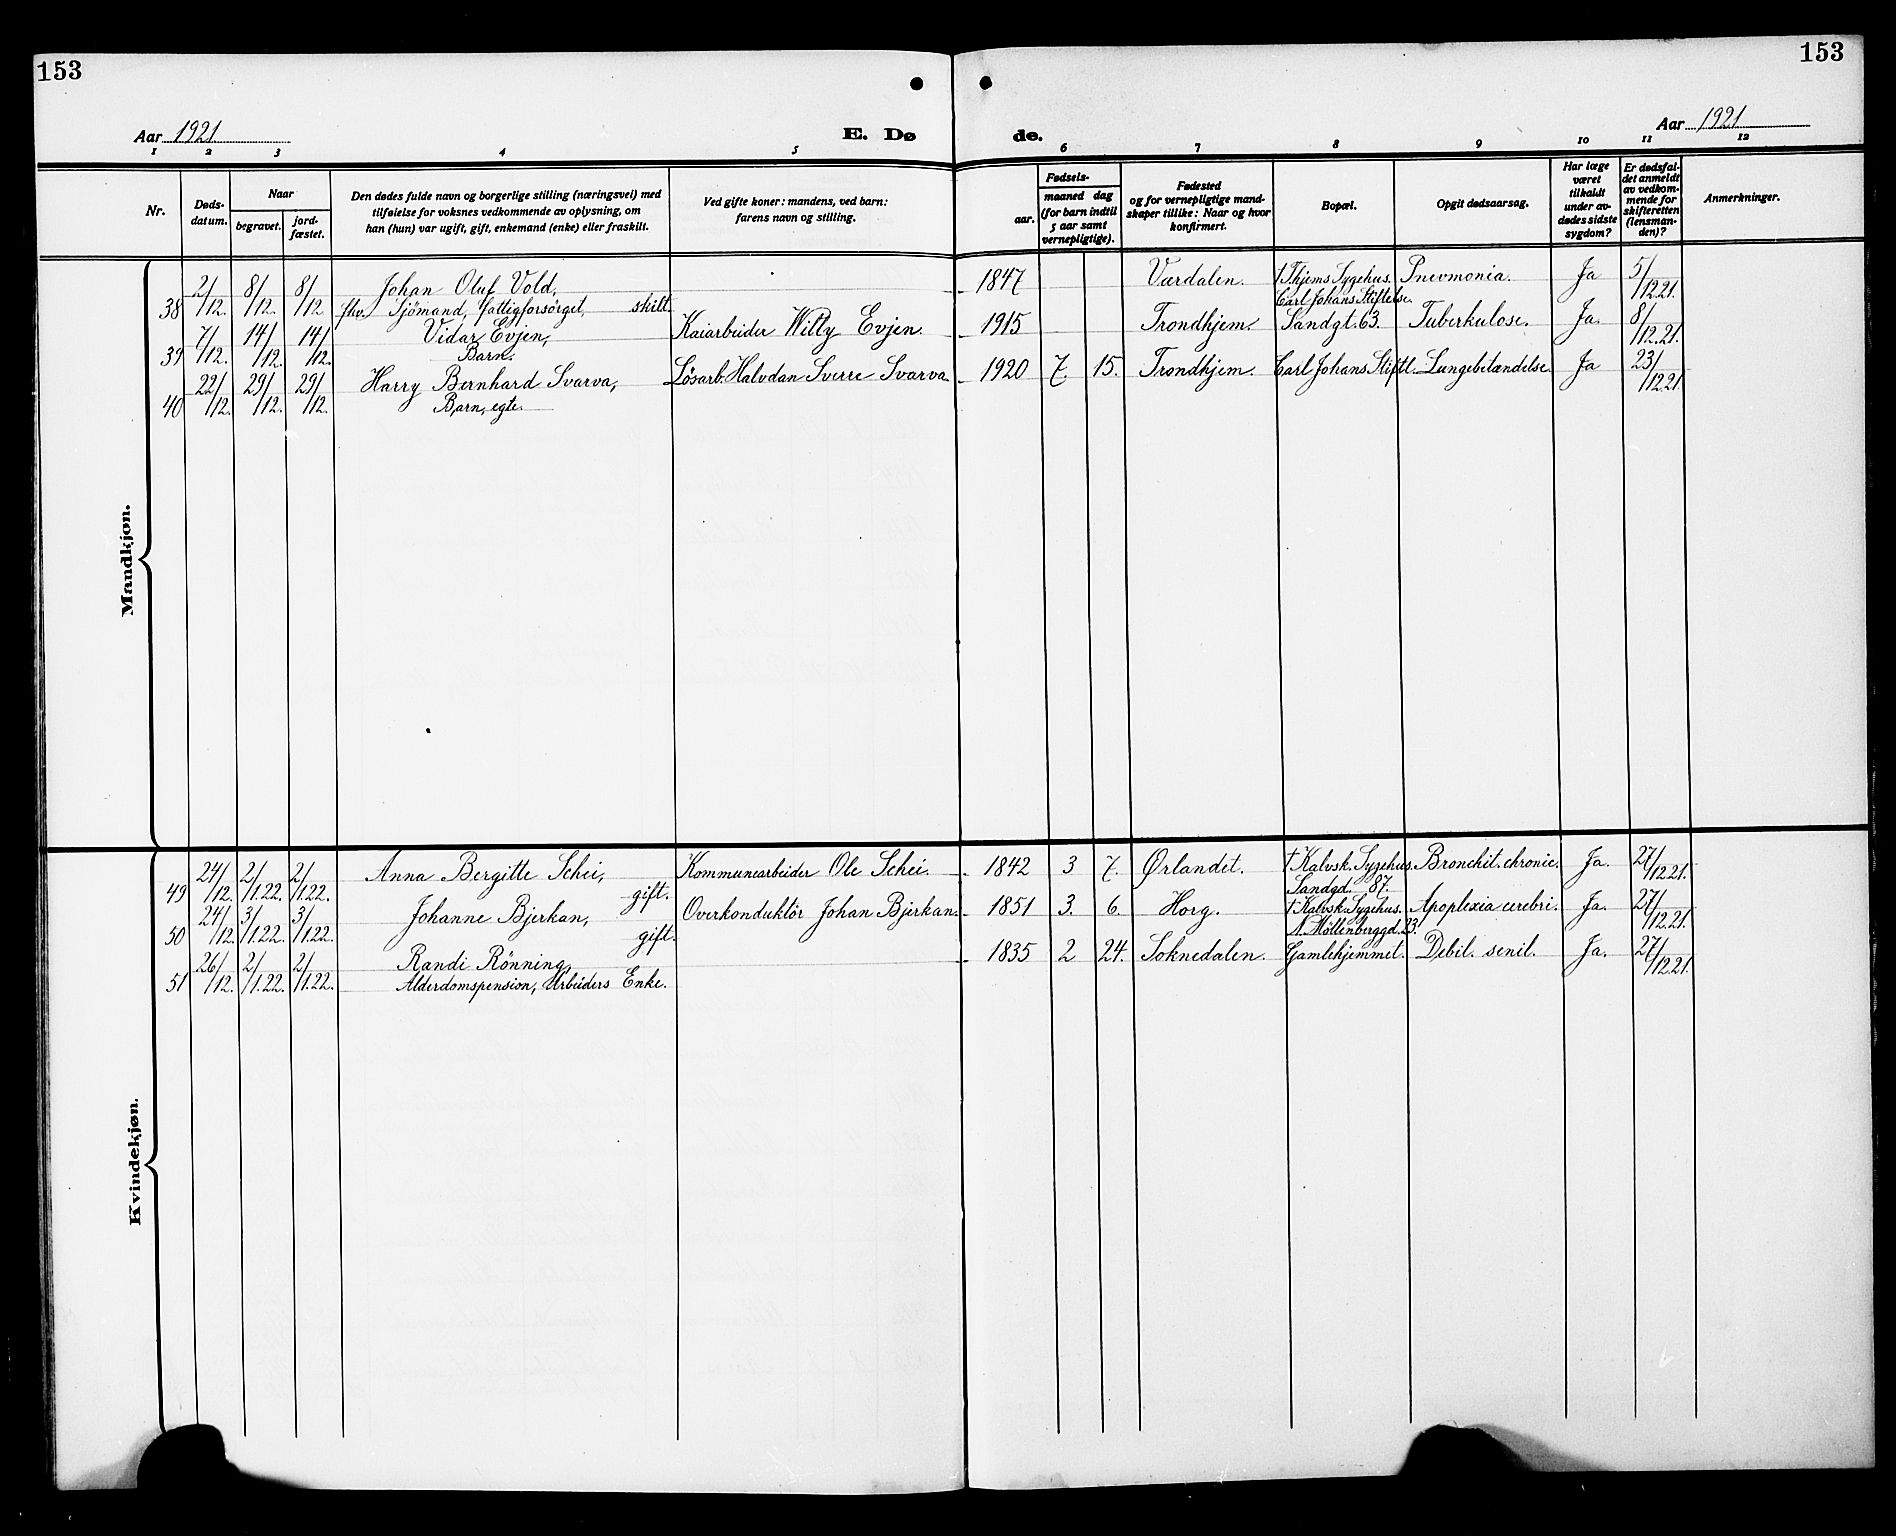 153
153
Aar 1921
E. Dø
de.
Aar 1921
1 2 3 4 5 6 7 8 9 10 11 12
Nr.
Døds-
datum.
Naar
begravet.
jord-
fæstet.
Den dødes fulde navn og borgerlige stilling (næringsvei) med
tilføielse for voksnes vedkommende av oplysning, om
han (hun) var ugift, gift, enkemand (enke) eller fraskilt.
Ved gifte koner: mandens, ved barn:
farens navn og stilling.
Fødsels-
aar.
maaned dag
(for barn indtil
5 aar samt
vernepligtige).
Fødested
og for vernepligtige mand-
skaper tillike: Naar og hvor
konfirmert.
Bopæl.
Opgit dødsaarsag.
Har læge
været
tilkaldt
under av-
dødes sidste
sygdom?
Er dødsfal-
det anmeldt
av vedkom-
mende for
skifteretten
(lensman-
den)?
Anmerkninger.
Mandkjøn.
2/ 8/ 8/ Johan Oluf Vold, 1847 Værdalen. † Thjems Sygehus. Pnevmonia. Ja 5/
38 /12. /12. /12 fhv. Sjömand, fattigforsørget, skilt. Carl Johans Stiftelse. /12.21.
7/ 14/ 14/ Vidar Evjen, Kaiarbeider Willy Evjen. 1915 Trondhjem. Sandgt. 63. Tuberkulose. Ja. 8/
39 /12. /12. /12. Barn. /12.21.
22/ 29/ 29/ Harry Bernhard Svarva, Løsarb. Halvdan Sverre Svarva 1920 7. 15. Trondhjem. Carl Johans Stiftl. Lungebetændelse Ja 23/
40 /12. /12. /12. Barn, egte. /12.21
Kvindekjøn.
24/ 2/ 2/ Anna Bergitte Schei, Kommunearbeider Ole Schei. 1842 3 7. Ørlandet. † Kalvsk. Sygehus. Bronchit. chronic. Ja. 27/
49 /12. /1.22. /1.22. gift. Sandgd. 87. /12.21.
24/ 3/ 3/ Johanne Bjerkan, Overkonduktör Johan Bjerkan. 1851 3. 6. Horg. † Kalvsk. Sygehus. Apoplexia cerebri. Ja. 27/
50 /12. /1.22. /1.22. gift. N. Möllenberggd. 23. /12.21.
26/ 2/ 2/ Randi Rönning, 1835 2 24. Soknedalen. Gamlehjemmet. Debil. senil. Ja. 27/
51 /12. /1.22. /1.22. Alderdomspension, Arbeiders Enke. /12.21.